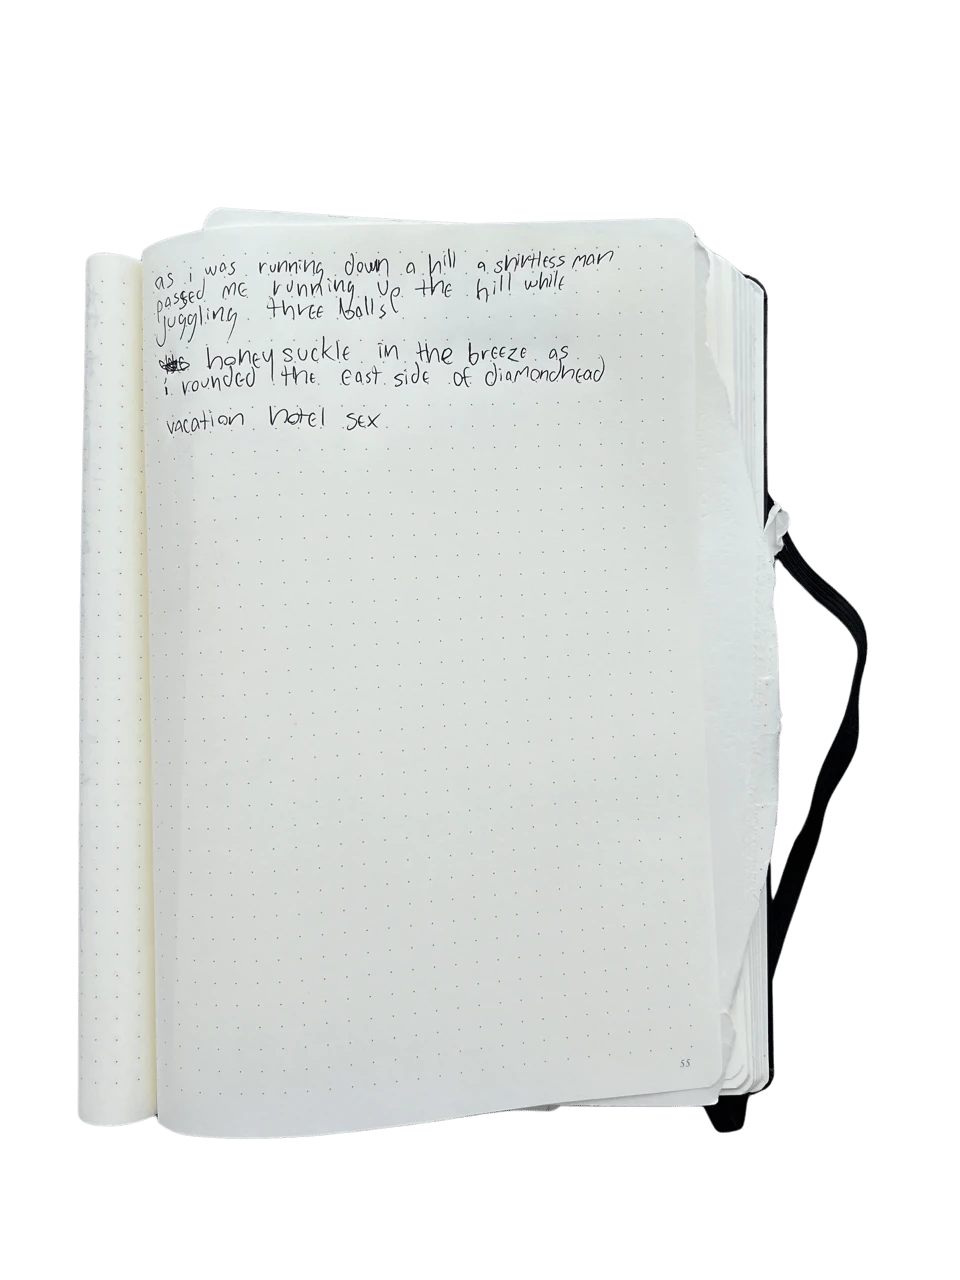 as i was running down a hill a shirtless man
passed me running up the hill while
juggling three balls
honeysuckle in the breeze as
i rounded the east side of diamondhead
vacation hotel sex
55